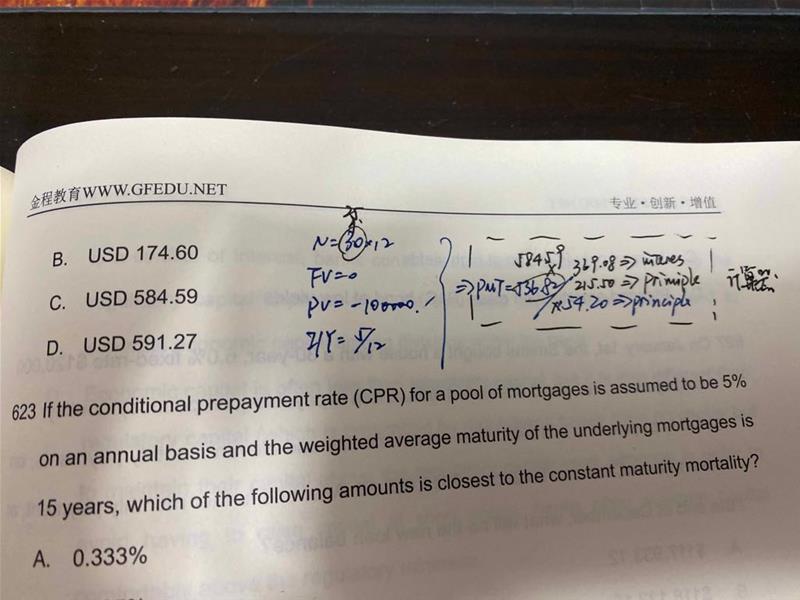 金程教育WWW.GFEDU.NET
专业·创新·增值
B. USD 174.60
C. USD 584.59
D. USD 591.27
N=30×12
FV=0
PV=-100000.
I/Y=5/12
58459
369.08⇒interes
⇒PMT=536.82
215.50⇒principle
154.20⇒principle
623 If the conditional prepayment rate (CPR) for a pool of mortgages is assumed to be 5%
on an annual basis and the weighted average maturity of the underlying mortgages is
15 years, which of the following amounts is closest to the constant maturity mortality?
A. 0.333%